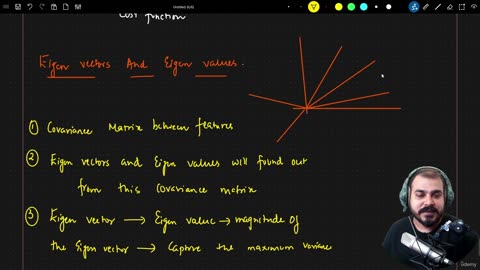 Untitled (US)
Cost function
Eigen vectors And Eigen values.
① Covariance Matrix between features
② Eigen vectors and Eigen values will found out
from this covariance matrix
③ Eigen vector → Eigen value → magnitude of
the Eigen vector → Capture the maximum variance
Udemy